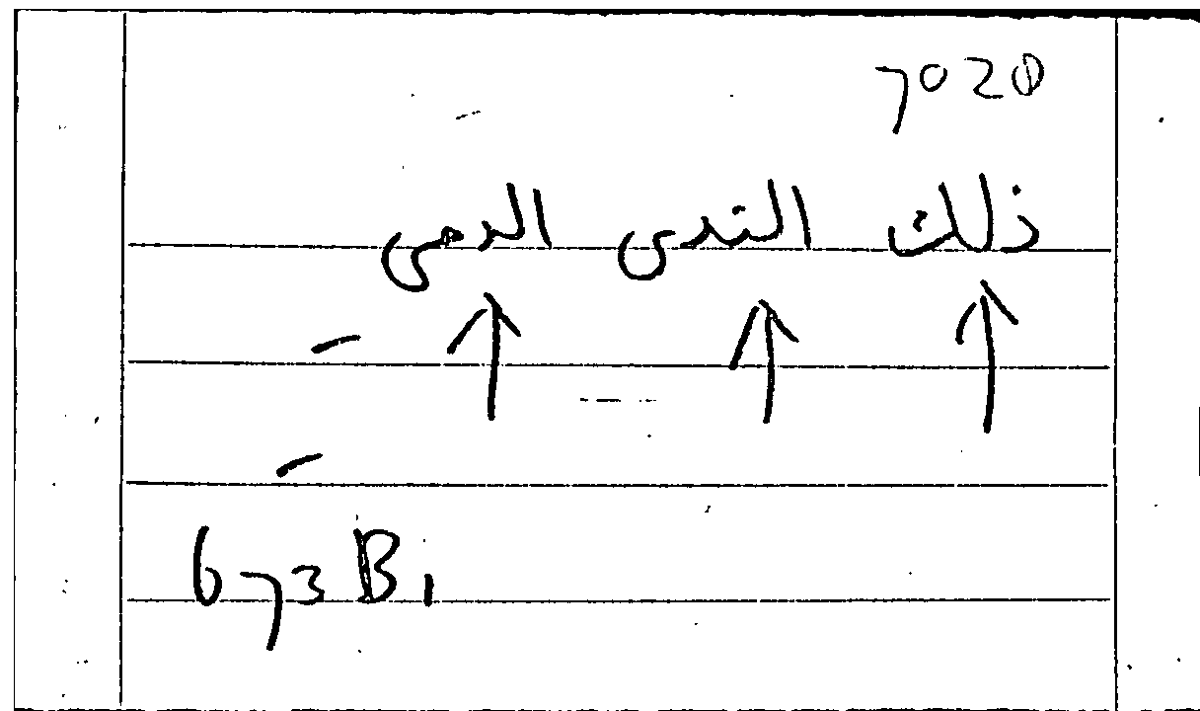 7020
ذلك الندى الدمى
↑ ↑ ↑
673 B1